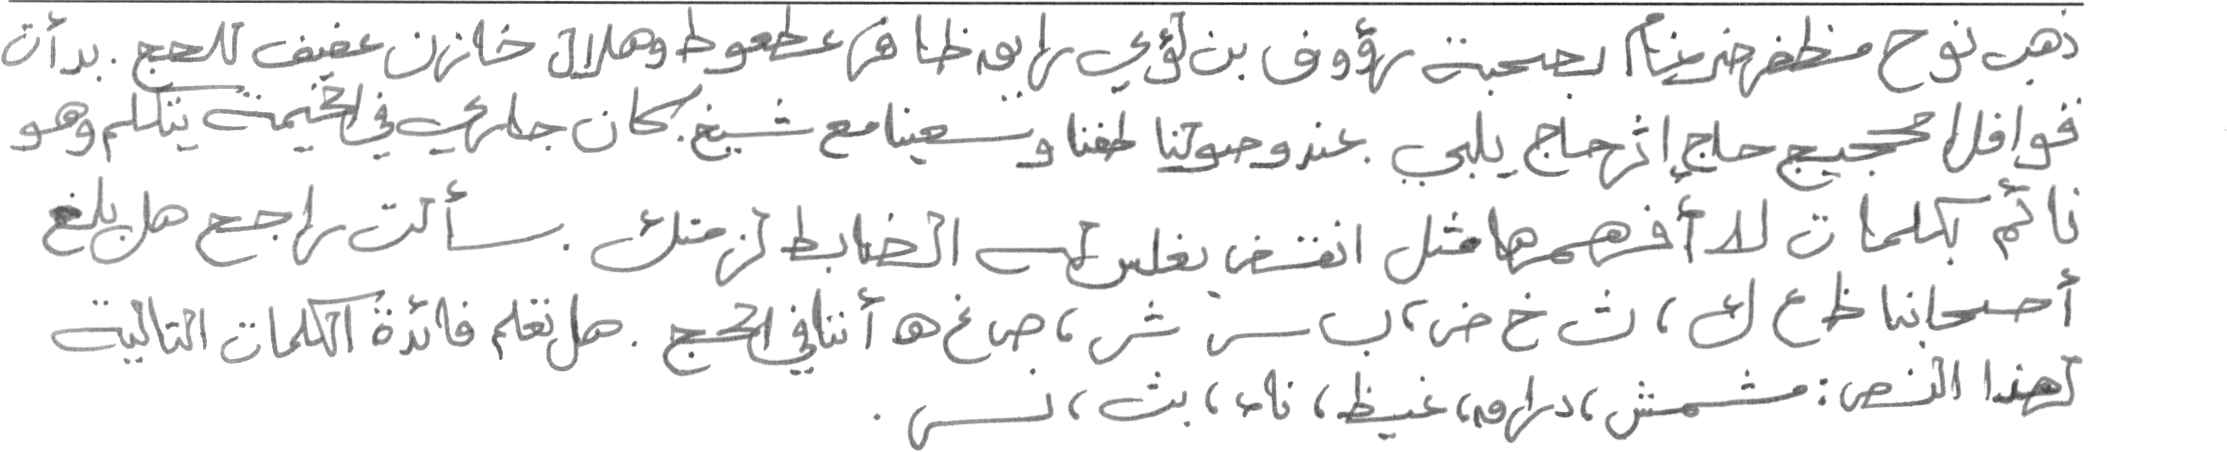 ذهب نوح مظفر ضرغام بصحبة رؤوف بن لؤي رافه ظافر عطعوط وهلال خازن عفيف للحج . بدأت
قوافل الحجيج حاج إثر حاج يلبي . عند وصولنا طفنا وسعينا مع شيخ . كان جاري في الخيمة يتكلم وهو
نائم بكلمات لا أفهمها مثل انقض بغلس الضابط لزمتك . سألت راجح هل بلغ
أصحابنا ظ ع ك ، ث خ ض ، ب س ش ، ص غ ه أننا في الحج . هل تعلم فائدة الكلمات التالية
لهذا النص : مشمش ، دراق ، غيظ ، ناء ، بث ، نسر .